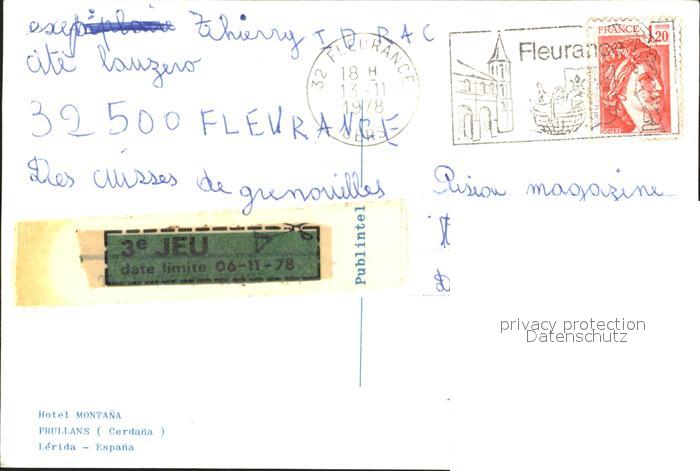 Thierry
cité lauzero
32500 FLEURANCE
Des cuisses de grenouilles
3e JEU
date limite 06-11-78
Publintel
Hotel MONTAÑA
PRULLANS ( Cerdaña )
Lérida - España
32 FLEURANCE
18 H
13-11
1978
GERS
Fleurance
FRANCE 1,20
POSTES
magazine
privacy protection
Datenschutz